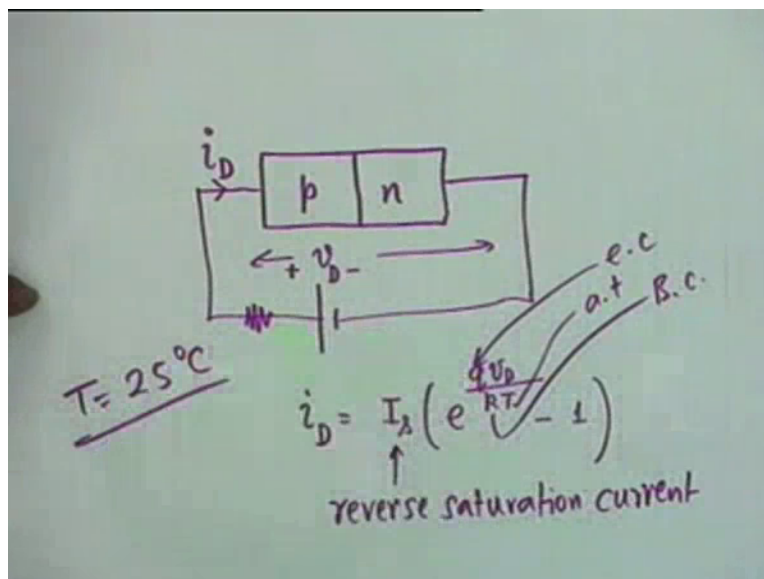 i_D
p n
+ v_D -
e.c
a.t
B.c.
T = 25°C
i_D = I_s (e^{qv_D/kT} - 1)
reverse saturation current